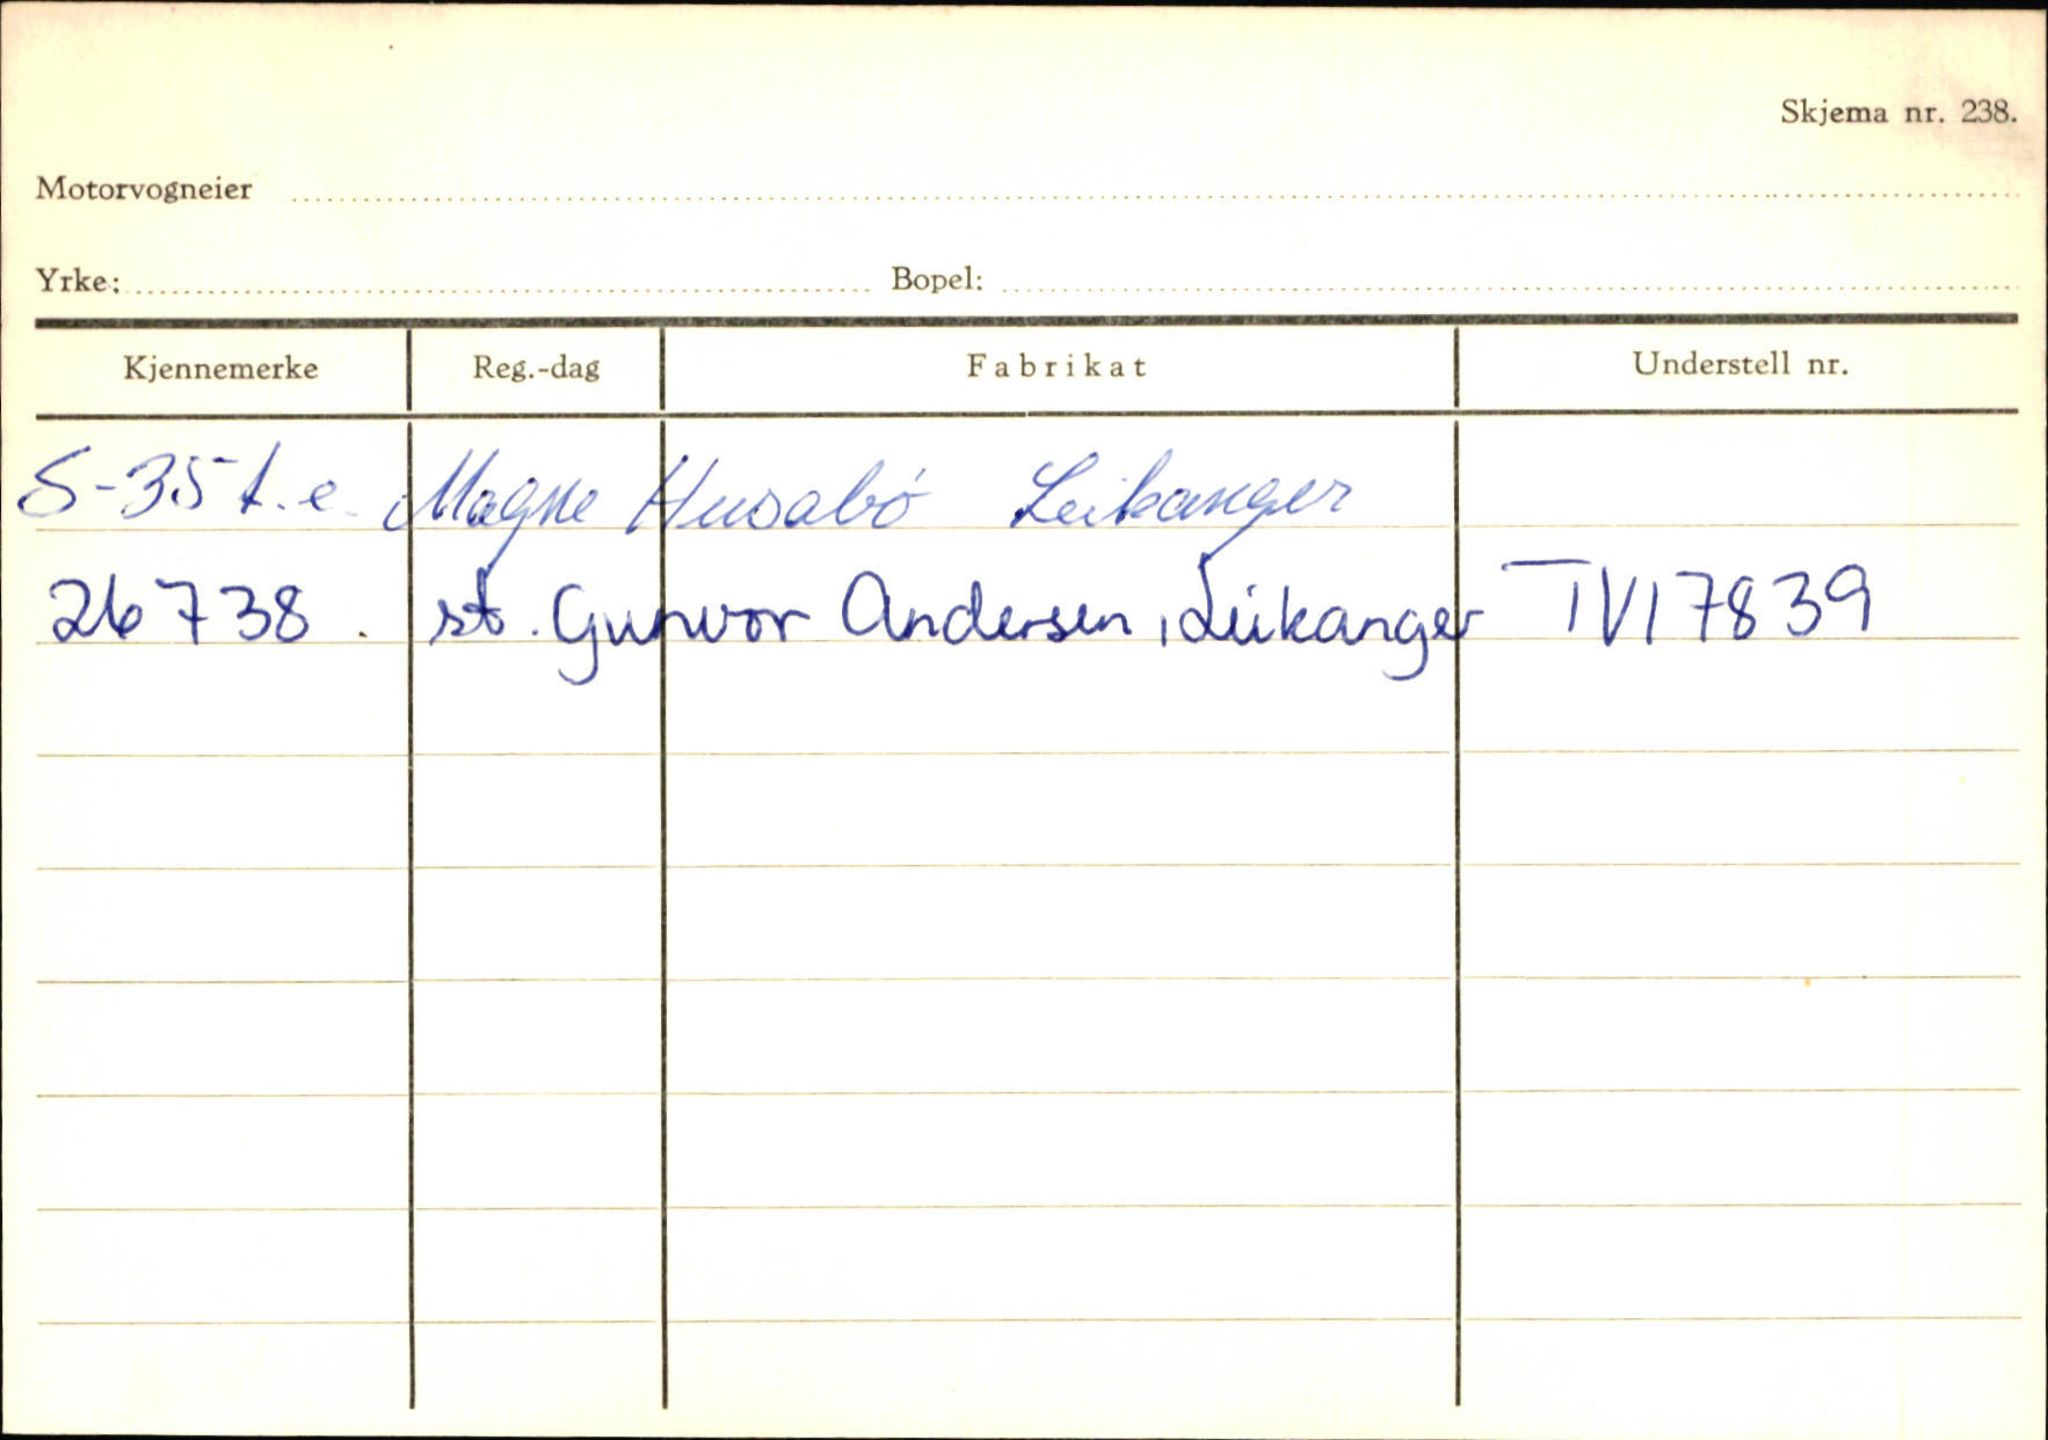 Skjema nr. 238.
Motorvogneier
Yrke: Bopel:
Kjennemerke Reg.-dag Fabrikat Understell nr.
S-35 t.e. Magne Husabó Leikanger
26738. st. Gunvor Andersen, Leikanger TV17839